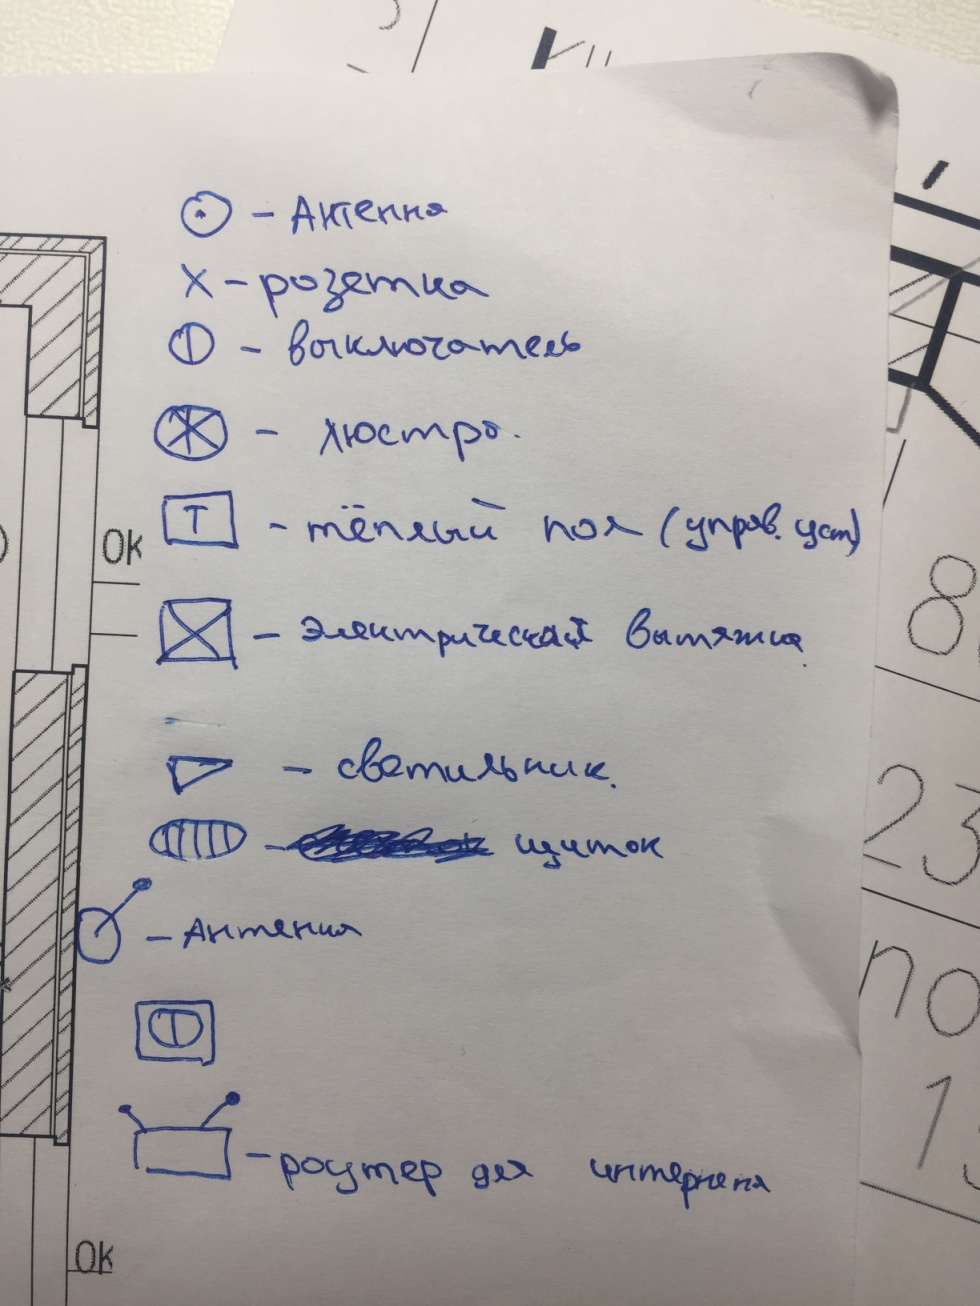 - Антенна
X - розетка
- выключатель
- люстра.
T - тёплый пол (упрв. уст)
- Электрической вытяжка
- светильник.
- щиток
- Антенна
- роутер для интернена
ОК
ОК
8
23
по
1